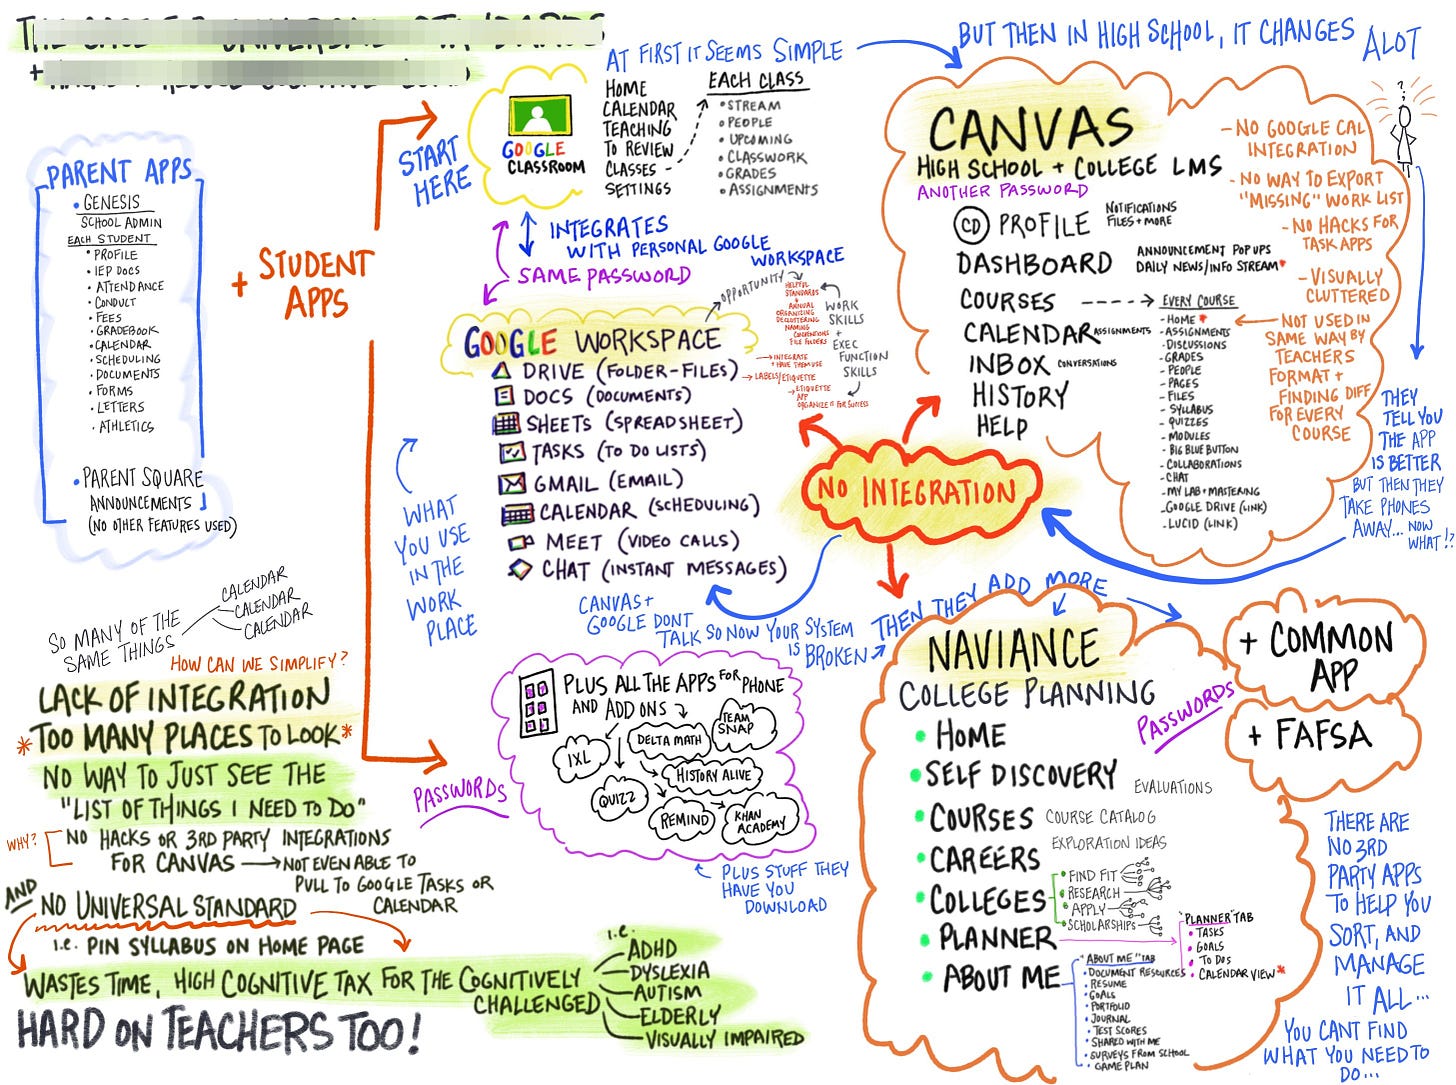 PARENT APPS
• GENESIS
SCHOOL ADMIN
EACH STUDENT
• PROFILE
• IEP DOCS
• ATTENDANCE
• CONDUCT
• FEES
• GRADEBOOK
• CALENDAR
• SCHEDULING
• DOCUMENTS
• FORMS
• LETTERS
• ATHLETICS
• PARENT SQUARE
ANNOUNCEMENTS
(NO OTHER FEATURES USED)
+ STUDENT
APPS
START
HERE
AT FIRST IT SEEMS SIMPLE
GOOGLE
CLASSROOM
HOME
CALENDAR
TEACHING
TO REVIEW
CLASSES -
SETTINGS
EACH CLASS
• STREAM
• PEOPLE
• UPCOMING
• CLASSWORK
• GRADES
• ASSIGNMENTS
INTEGRATES
WITH PERSONAL GOOGLE
WORKSPACE
SAME PASSWORD
GOOGLE WORKSPACE
DRIVE (FOLDER-FILES)
DOCS (DOCUMENTS)
SHEETS (SPREADSHEET)
TASKS (TO DO LISTS)
GMAIL (EMAIL)
CALENDAR (SCHEDULING)
MEET (VIDEO CALLS)
CHAT (INSTANT MESSAGES)
WHAT
YOU USE
IN THE
WORK
PLACE
OPPORTUNITY
HELPFUL
STANDARDS
+
ANNUAL
ORGANIZING
DECLUTTERING
NAMING
CONVENTIONS
FILE FOLDERS
→ INTEGRATE
+ HAVE THEM USE
→ LABELS/ETIQUETTE
→ ETIQUETTE
APP
ORGANIZE IT FOR SUCCESS
WORK
SKILLS
+
EXEC
FUNCTION
SKILLS
BUT THEN IN HIGH SCHOOL, IT CHANGES ALOT
CANVAS
HIGH SCHOOL + COLLEGE LMS
ANOTHER PASSWORD
CD PROFILE
NOTIFICATIONS
FILES + MORE
DASHBOARD
ANNOUNCEMENT POP UPS
DAILY NEWS/INFO STREAM*
COURSES
CALENDAR ASSIGNMENTS
INBOX CONVERSATIONS
HISTORY
HELP
EVERY COURSE
- HOME *
- ASSIGNMENTS
- DISCUSSIONS
- GRADES
- PEOPLE
- PAGES
- FILES
- SYLLABUS
- QUIZZES
- MODULES
- BIG BLUE BUTTON
- COLLABORATIONS
- CHAT
- MY LAB + MASTERING
- GOOGLE DRIVE (LINK)
- LUCID (LINK)
- NO GOOGLE CAL
INTEGRATION
- NO WAY TO EXPORT
"MISSING" WORK LIST
- NO HACKS FOR
TASK APPS
- VISUALLY
CLUTTERED
NOT USED IN
SAME WAY BY
TEACHERS
FORMAT +
FINDING DIFF
FOR EVERY
COURSE
? ? ?
THEY
TELL YOU
THE APP
IS BETTER
BUT THEN THEY
TAKE PHONES
AWAY... NOW
WHAT!?
NO INTEGRATION
CANVAS +
GOOGLE DONT
TALK SO NOW YOUR SYSTEM
IS BROKEN
THEN THEY ADD MORE
NAVIANCE
COLLEGE PLANNING
PASSWORDS
• HOME
• SELF DISCOVERY EVALUATIONS
• COURSES COURSE CATALOG
• CAREERS EXPLORATION IDEAS
• COLLEGES
• FIND FIT
• RESEARCH
• APPLY
• SCHOLARSHIPS
• PLANNER
• ABOUT ME
"PLANNER" TAB
• TASKS
• GOALS
• TO DOS
• CALENDAR VIEW *
"ABOUT ME" TAB
• DOCUMENT RESOURCES
• RESUME
• GOALS
• PORTFOLIO
• JOURNAL
• TEST SCORES
• SHARED WITH ME
• SURVEYS FROM SCHOOL
• GAME PLAN
+ COMMON
APP
+ FAFSA
THERE ARE
NO 3RD
PARTY APPS
TO HELP YOU
SORT, AND
MANAGE
IT ALL...
YOU CANT FIND
WHAT YOU NEED TO
DO...
PLUS ALL THE APPS FOR PHONE
AND ADD ONS
IXL
DELTA MATH
TEAM
SNAP
HISTORY ALIVE
QUIZZ
REMIND
KHAN
ACADEMY
PASSWORDS
PLUS STUFF THEY
HAVE YOU
DOWNLOAD
SO MANY OF THE
SAME THINGS
CALENDAR
CALENDAR
CALENDAR
HOW CAN WE SIMPLIFY?
LACK OF INTEGRATION
* TOO MANY PLACES TO LOOK *
NO WAY TO JUST SEE THE
"LIST OF THINGS I NEED TO DO"
WHY?
NO HACKS OR 3RD PARTY INTEGRATIONS
FOR CANVAS → NOT EVEN ABLE TO
PULL TO GOOGLE TASKS OR
CALENDAR
AND
NO UNIVERSAL STANDARD
i.e. PIN SYLLABUS ON HOME PAGE
WASTES TIME, HIGH COGNITIVE TAX FOR THE COGNITIVELY
CHALLENGED
i.e.
ADHD
DYSLEXIA
AUTISM
ELDERLY
VISUALLY IMPAIRED
HARD ON TEACHERS TOO!